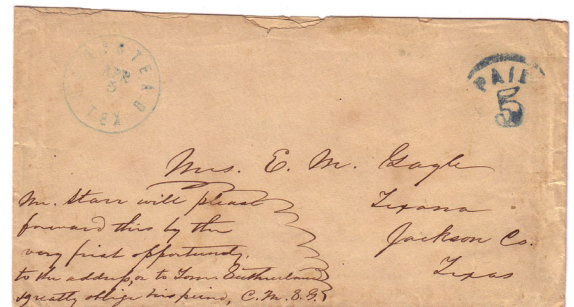 APR
3
TEX
PAID
5
Mrs. E. M. Gagle
Texana
Jackson Co.
Texas
Mr. Starr will please
forward this by the
very first opportunity.
to the address, or to Sutherland
& greatly oblige his friend, C. M. S. G.